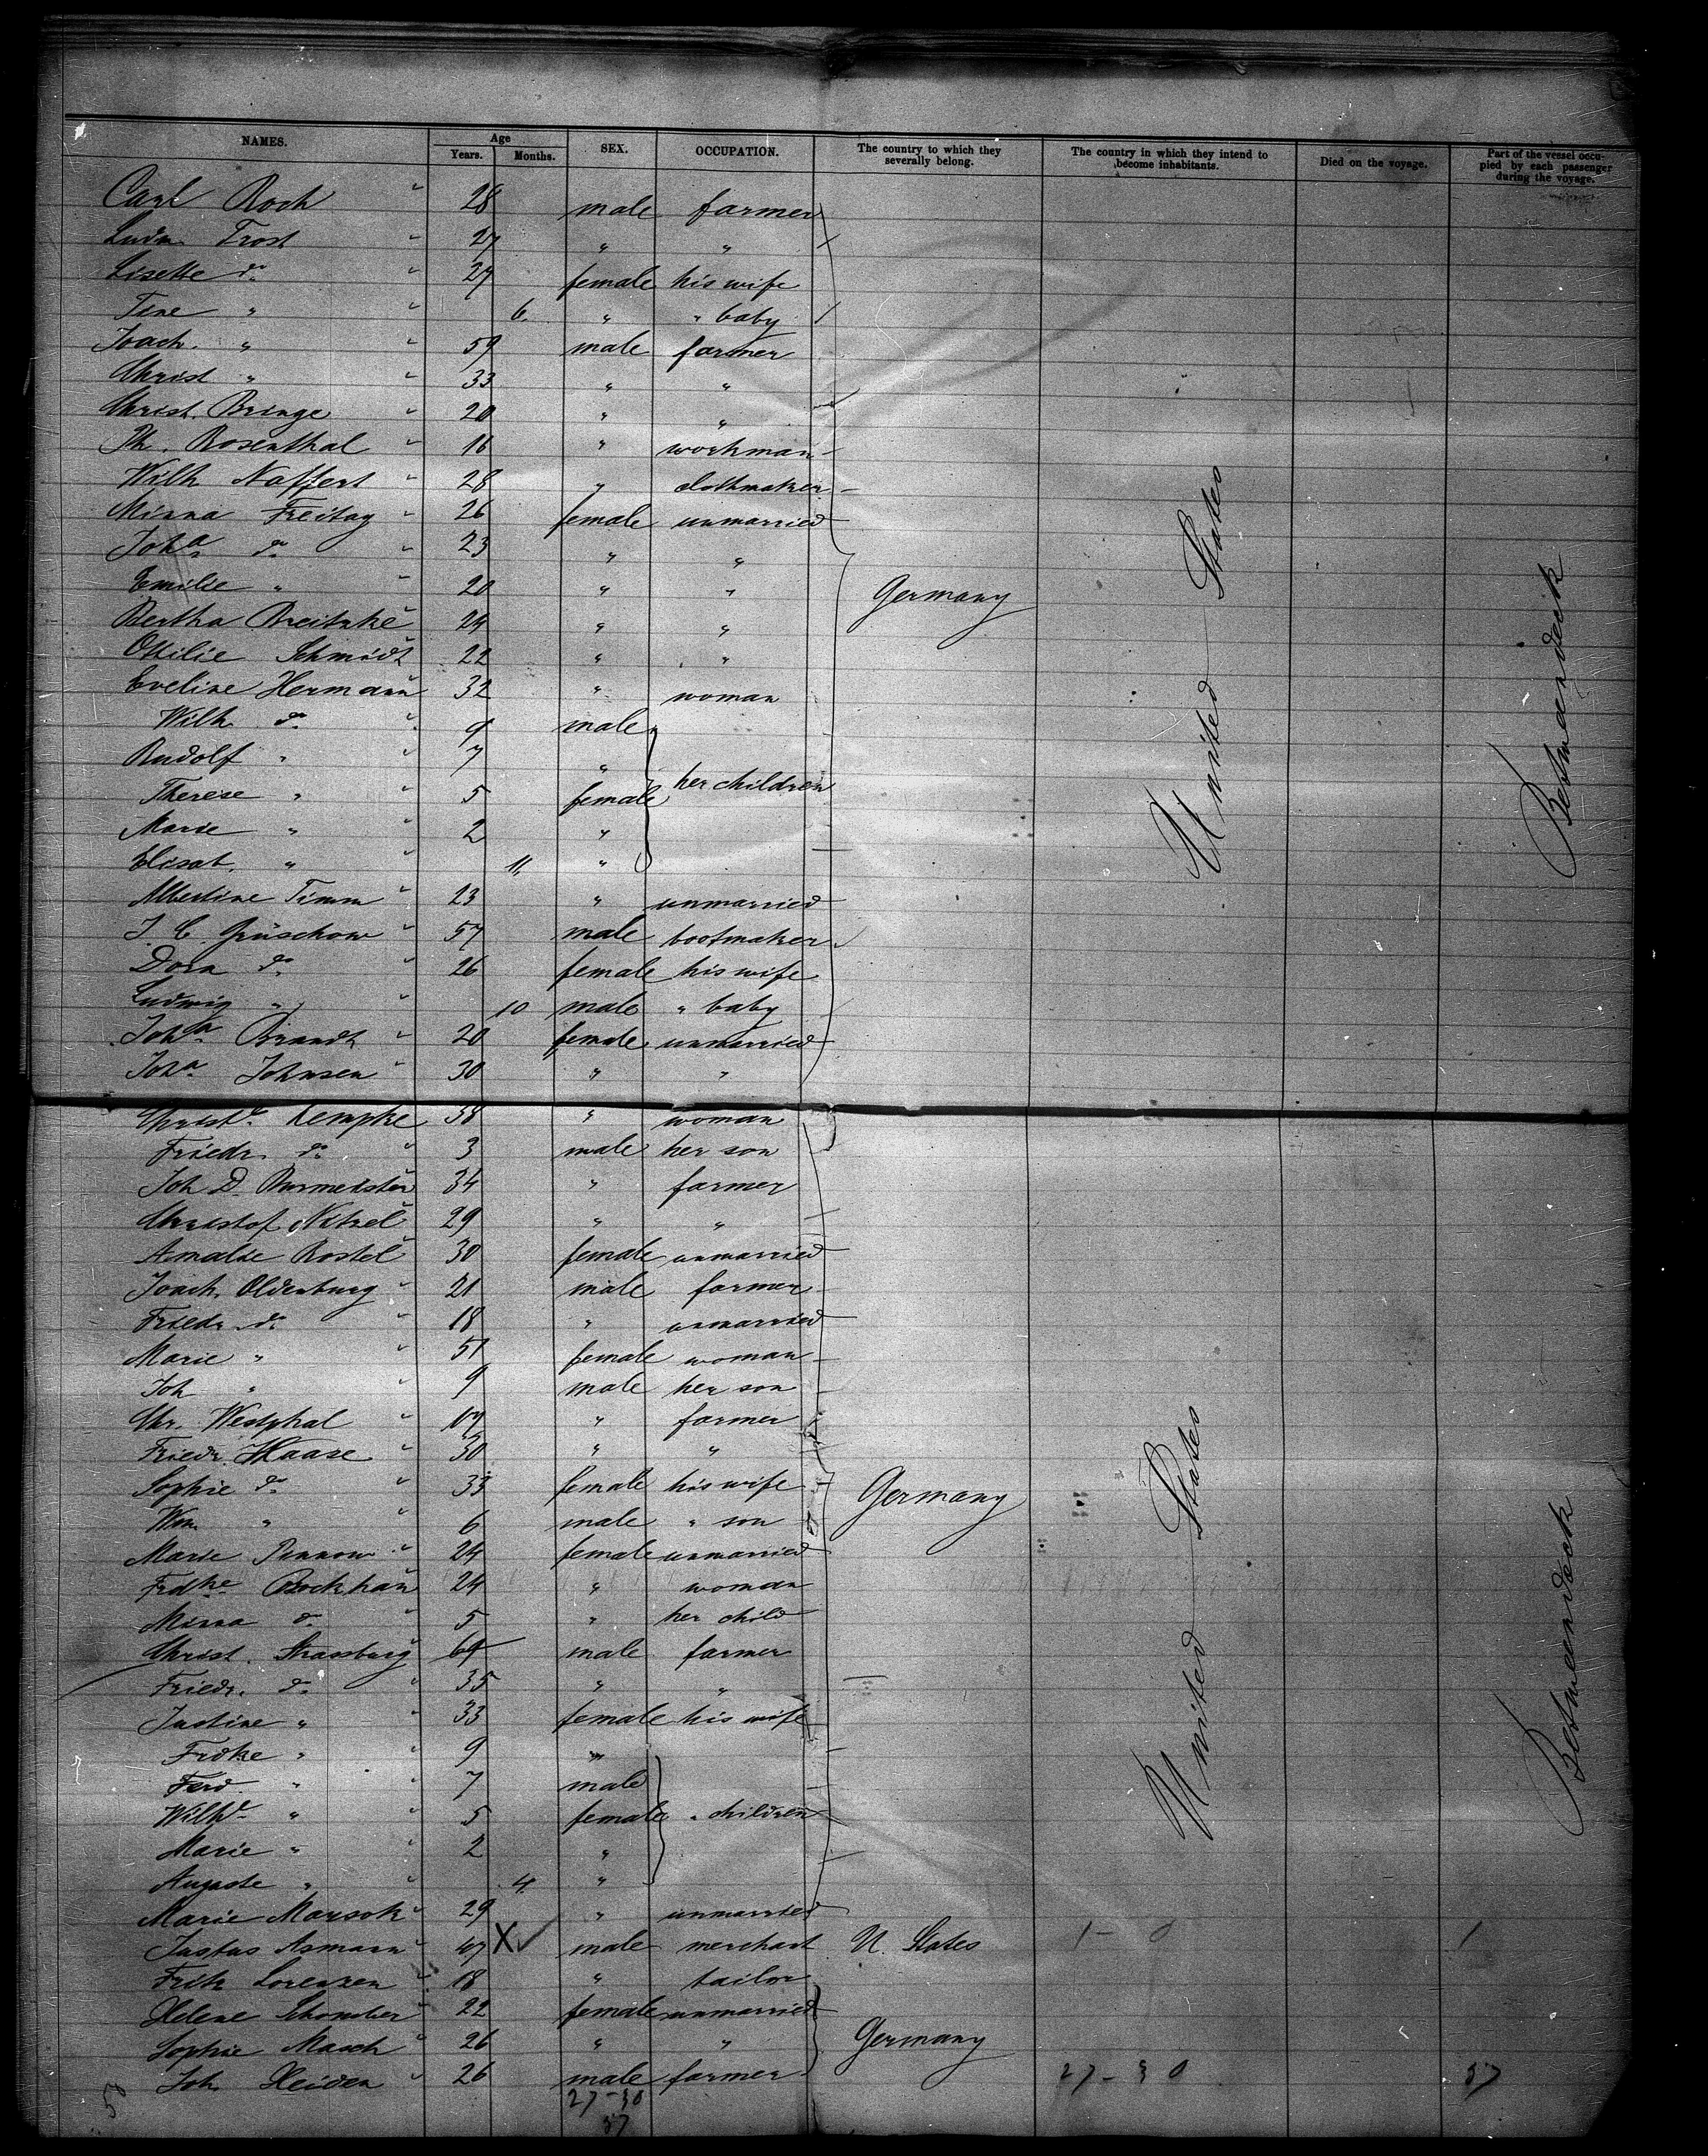 NAMES. Age Years. Months. SEX. OCCUPATION. The country to which they severally belong. The country in which they intend to become inhabitants. Died on the voyage. Part of the vessel occupied by each passenger during the voyage.
Carl Roch 28 male farmer
Ludw. Trost 27 " "
Lisette do 27 female his wife
Tine " 6 " " baby
Joach. " 59 male farmer
Christ " 33 " "
Christ. Bringe 20 " "
Th. Rosenthal 16 " workman
Wilh Naffert 28 " clothmaker
Minna Freitag 26 female unmarried
Joha do 23 " "
Emilie " 20 " " Germany United States Betweendeck
Bertha Breitzke 24 " "
Ottilie Schmidt 22 " "
Eveline Hermann 32 " woman
Wilh do 9 male
Rudolf " 7 "
Therese " 5 female her children
Marie " 2 "
Elisab. " 11 "
Albertine Timm 23 " unmarried
J. C. Grüschow 57 male bootmaker
Dora do 26 female his wife
Ludwig " 10 male " baby
Joha Brandt 20 female unmarried
Joha Johnsen 30 " "
Christe Kempke 38 " woman
Friedr. do 3 male her son
Joh D. Burmeister 34 " farmer
Christof Nitzel 29 " "
Amalie Rostol 30 female unmarried
Joach. Oldenburg 21 male farmer
Friedr. do 18 " unmarried
Marie " 51 female woman
Joh " 9 male her son
Chr. Westphal 17 " farmer
Friedr. Haase 30 " "
Sophie do 33 female his wife Germany United States Betweendeck
Wm. " 6 male " son
Marie Pinnow 24 female unmarried
Frdke Bockhan 24 " woman
Minna do 5 " her child
Christ. Strassburg 69 male farmer
Friedr. do 35 " "
Justine " 33 female his wife
Frdke " 9 "
Ferd. " 7 male
Wilhe " 5 female " children
Marie " 2 "
Auguste " 4 "
Marie Marsok 29 " unmarried
Justus Asmann 47 X male merchant U. States 1 - 0 1
Fritz Lorenzen 18 " tailor
Helene 22 female unmarried
Sophie Masch 26 " " Germany
Joh. Heiden 26 male farmer 27 - 30 57
27 - 30
57